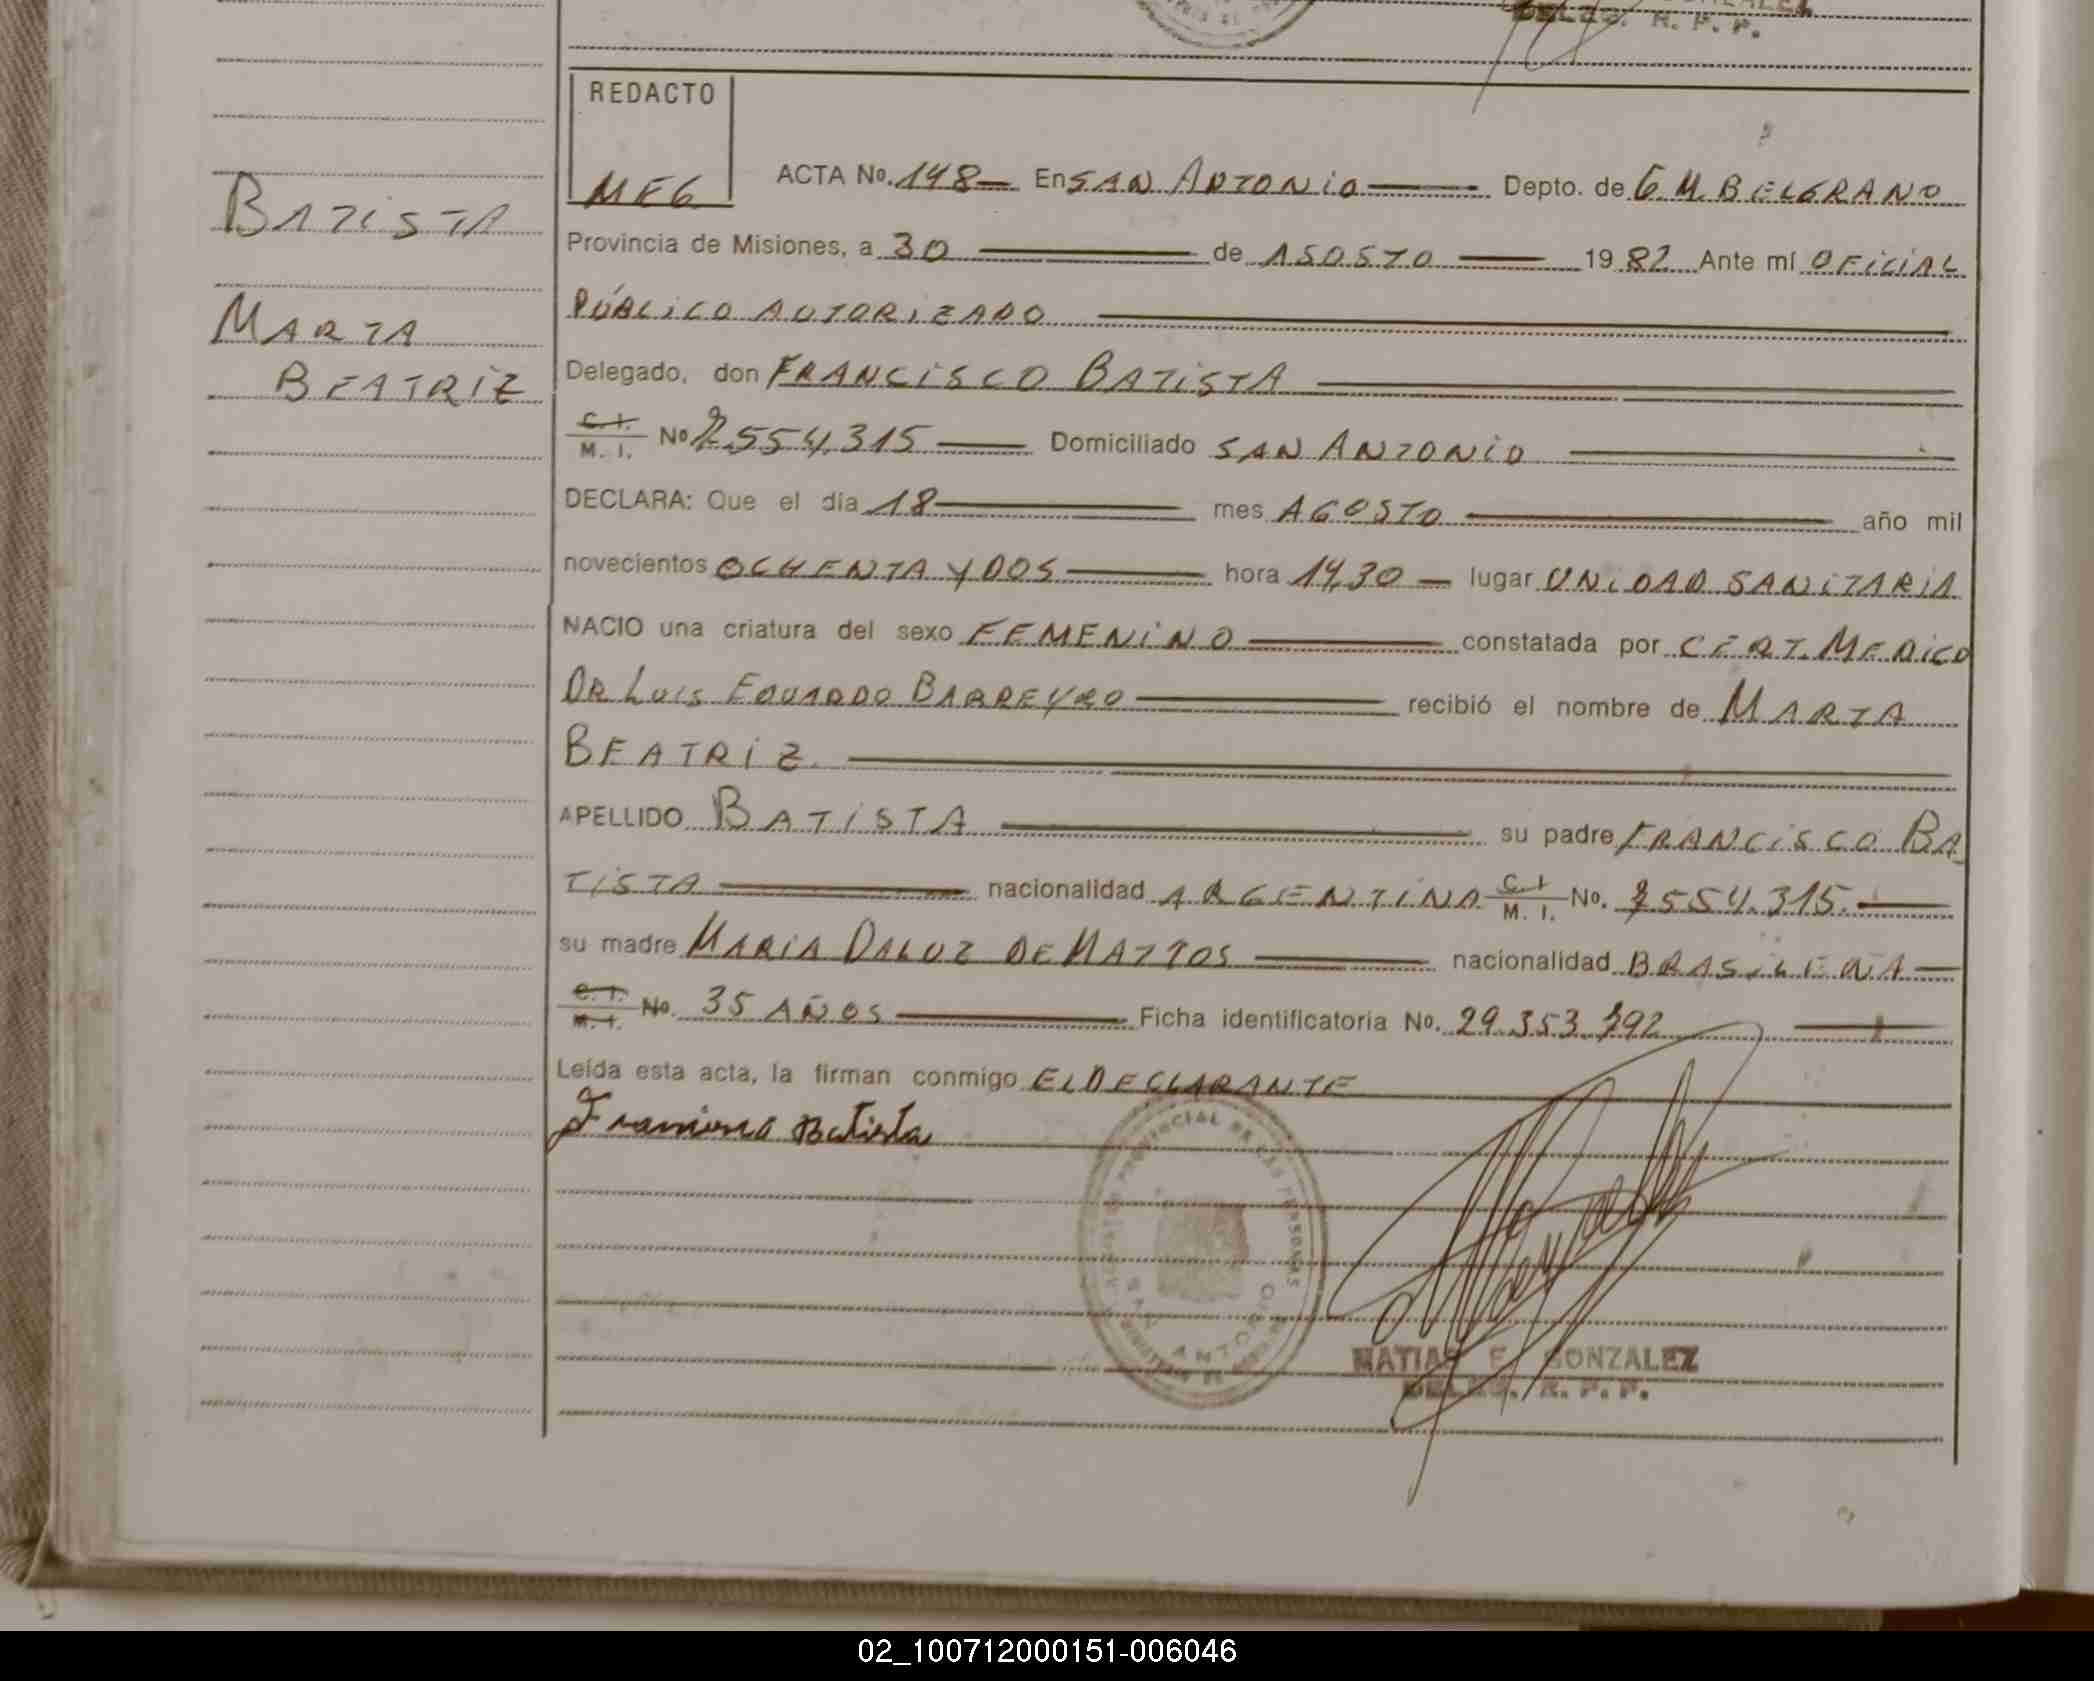 R. P. P.
REDACTO
MEG
ACTA No. 148 En SAN ANTONIO Depto. de G. M. BELGRANO
BATISTA
Provincia de Misiones, a 30 de AGOSTO 1982 Ante mí OFICIAL
PÚBLICO AUTORIZADO
MARTA
BEATRIZ
Delegado, don FRANCISCO BATISTA
C. I.
M. I. No 7.554.315 Domiciliado SAN ANTONIO
DECLARA: Que el día 18 mes AGOSTO año mil
novecientos OCHENTA Y DOS hora 14,30 lugar UNIDAD SANITARIA
NACIO una criatura del sexo FEMENINO constatada por CERT. MEDICO
DR LUIS EDUARDO BARREYRO recibió el nombre de MARTA
BEATRIZ
APELLIDO BATISTA su padre FRANCISCO BA
TISTA nacionalidad ARGENTINA C. I
M. I. No. 7554.315.
su madre MARIA DALUZ DE MATTOS nacionalidad BRASILEÑA
C. I.
M. I. No. 35 AÑOS Ficha identificatoria No. 29.353.792
Leída esta acta, la firman conmigo EL DECLARANTE
Francisco Batista
REGISTRO PROVINCIAL DE LAS PERSONAS
SAN ANTONIO
MATIAS E. GONZALEZ
DELEG. R. P. P.
02_100712000151-006046